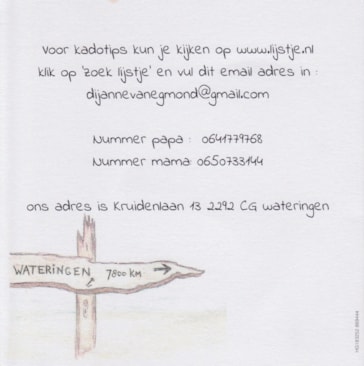 Voor kadotips kun je kijken op www.lijstje.nl
klik op 'zoek lijstje' en vul dit email adres in :
dijannevanegmond@gmail.com
Nummer papa : 0641779768
Nummer mama: 0650733144
ons adres is Kruidenlaan 13 2292 CG wateringen
WATERINGEN 7800 KM